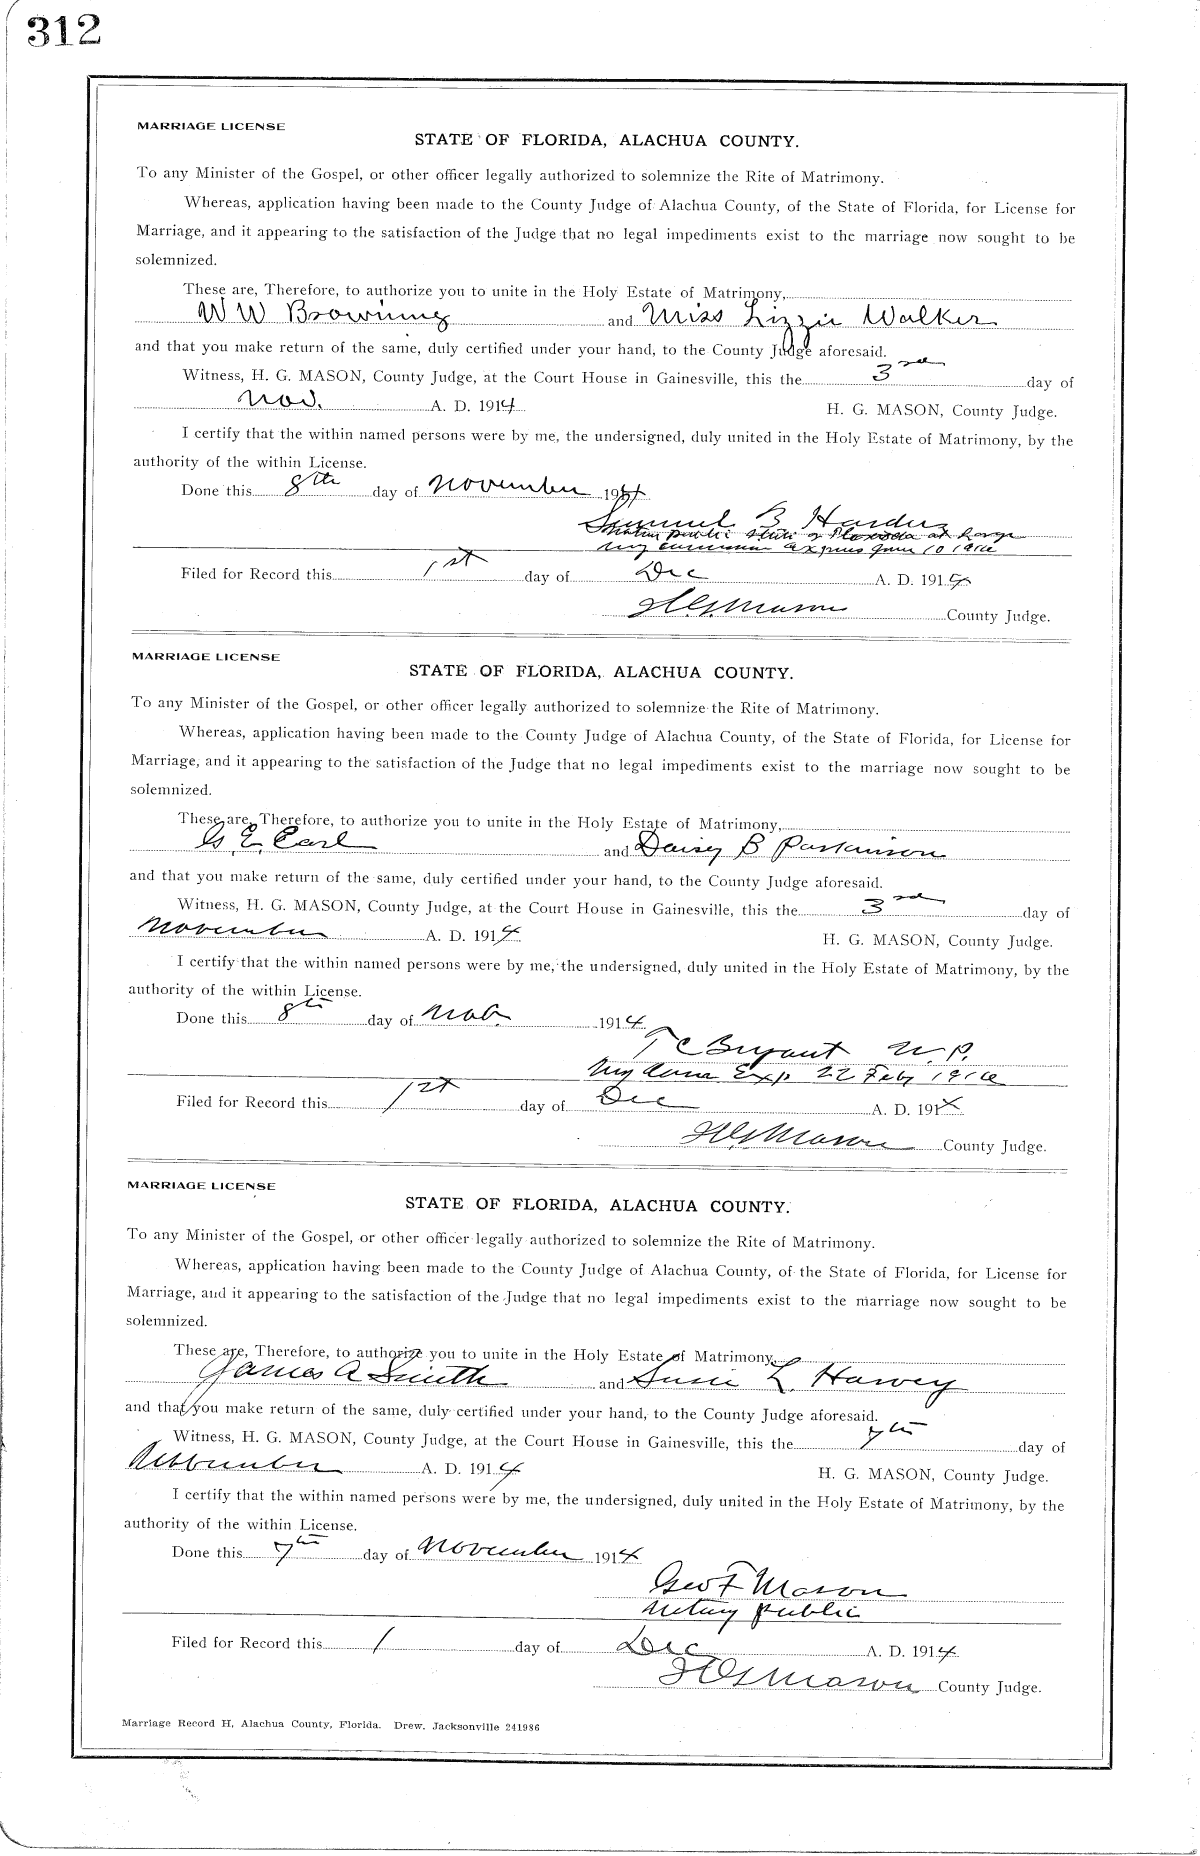 312
MARRIAGE LICENSE
STATE OF FLORIDA, ALACHUA COUNTY.
To any Minister of the Gospel, or other officer legally authorized to solemnize the Rite of Matrimony.
Whereas, application having been made to the County Judge of Alachua County, of the State of Florida, for License for
Marriage, and it appearing to the satisfaction of the Judge that no legal impediments exist to the marriage now sought to be
solemnized.
These are, Therefore, to authorize you to unite in the Holy Estate of Matrimony,
W W Browning and Miss Lizzie Walker
and that you make return of the same, duly certified under your hand, to the County Judge aforesaid.
Witness, H. G. MASON, County Judge, at the Court House in Gainesville, this the 3rd day of
Nov. A. D. 1914 H. G. MASON, County Judge.
I certify that the within named persons were by me, the undersigned, duly united in the Holy Estate of Matrimony, by the
authority of the within License.
Done this 8th day of November 1914
Samuel B Harder
Notary Public State of Florida at Large
My commission expires June 10 1916
Filed for Record this 1st day of Dec A. D. 1914
H G Mason County Judge.
MARRIAGE LICENSE
STATE OF FLORIDA, ALACHUA COUNTY.
To any Minister of the Gospel, or other officer legally authorized to solemnize the Rite of Matrimony.
Whereas, application having been made to the County Judge of Alachua County, of the State of Florida, for License for
Marriage, and it appearing to the satisfaction of the Judge that no legal impediments exist to the marriage now sought to be
solemnized.
These are, Therefore, to authorize you to unite in the Holy Estate of Matrimony,
G. E. Earl and Daisy B Parkinson
and that you make return of the same, duly certified under your hand, to the County Judge aforesaid.
Witness, H. G. MASON, County Judge, at the Court House in Gainesville, this the 3rd day of
November A. D. 1914 H. G. MASON, County Judge.
I certify that the within named persons were by me, the undersigned, duly united in the Holy Estate of Matrimony, by the
authority of the within License.
Done this 8th day of Nov. 1914
T C Bryant N. P.
My Exp 22 Feby 1916
Filed for Record this 1st day of Dec A. D. 1914
H G Mason County Judge.
MARRIAGE LICENSE
STATE OF FLORIDA, ALACHUA COUNTY.
To any Minister of the Gospel, or other officer legally authorized to solemnize the Rite of Matrimony.
Whereas, application having been made to the County Judge of Alachua County, of the State of Florida, for License for
Marriage, and it appearing to the satisfaction of the Judge that no legal impediments exist to the marriage now sought to be
solemnized.
These are, Therefore, to authorize you to unite in the Holy Estate of Matrimony,
James A Smith and Susie L. Harvey
and that you make return of the same, duly certified under your hand, to the County Judge aforesaid.
Witness, H. G. MASON, County Judge, at the Court House in Gainesville, this the 7th day of
November A. D. 1914 H. G. MASON, County Judge.
I certify that the within named persons were by me, the undersigned, duly united in the Holy Estate of Matrimony, by the
authority of the within License.
Done this 7th day of November 1914
Geo F Mason
Notary public
Filed for Record this 1 day of Dec A. D. 1914
H G Mason County Judge.
Marriage Record H, Alachua County, Florida. Drew, Jacksonville 241986